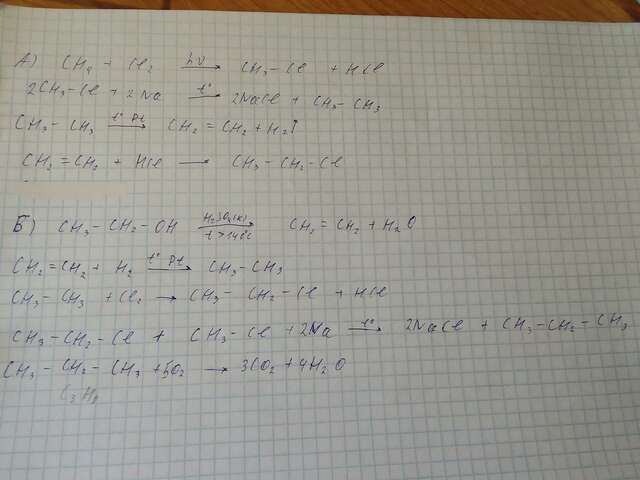 А) CH₄ + Cl₂ —hν→ CH₃-Cl + HCl
2CH₃-Cl + 2Na —t°→ 2NaCl + CH₃-CH₃
CH₃-CH₃ —t° Pt→ CH₂=CH₂ + H₂↑
CH₂=CH₂ + HCl → CH₃-CH₂-Cl
Б) CH₃-CH₂-OH —H₂SO₄(к) t>140°C→ CH₂=CH₂ + H₂O
CH₂=CH₂ + H₂ —t° Pt→ CH₃-CH₃
CH₃-CH₃ + Cl₂ → CH₃-CH₂-Cl + HCl
CH₃-CH₂-Cl + CH₃-Cl + 2Na —t°→ 2NaCl + CH₃-CH₂-CH₃
CH₃-CH₂-CH₃ + 5O₂ → 3CO₂ + 4H₂O
C₃H₈